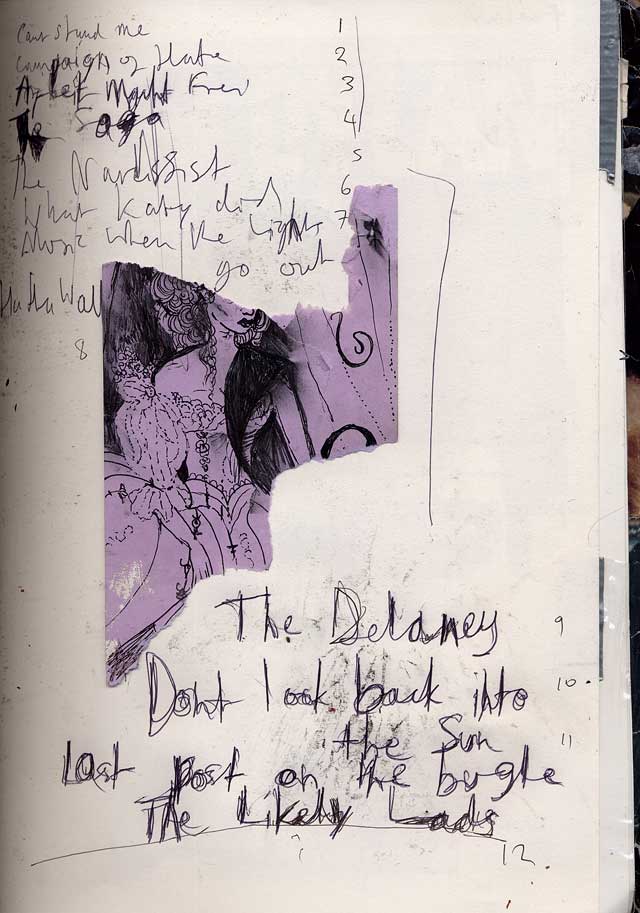 Cant stand me 1
Campaign of Hate 2
Arbeit Macht Frei 3
The Saga 4
5
The Narcissist
What Katy did 6
Music when the lights 7
go out
Ha Ha Wall
8
The Delaney 9
Dont look back into 10.
the Sun 11
Last post on the bugle
The Likely Lads
? 12.